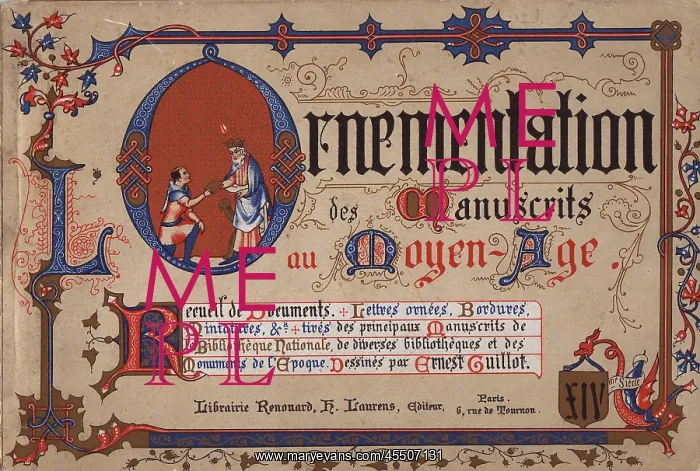 L'Ornementation
des Manuscrits
au Moyen-Age.
Recueil de Documents. + Lettres ornées, Bordures,
Miniatures, &ª + tirés des principaux Manuscrits de
la Bibliothèque Nationale, de diverses bibliothèques et des
Monuments de l'Epoque. Dessinés par Ernest Guillot.
Librairie Renouard, H. Laurens, Editeur,
Paris.
6, rue de Tournon.
XIV
me Siècle
ME
PL
ME
PL
www.maryevans.com/45507131